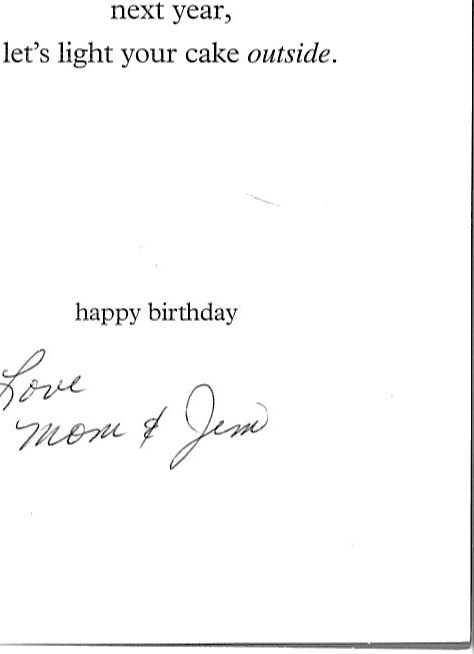 next year,
let's light your cake outside.
happy birthday
Love
Mom & Jem